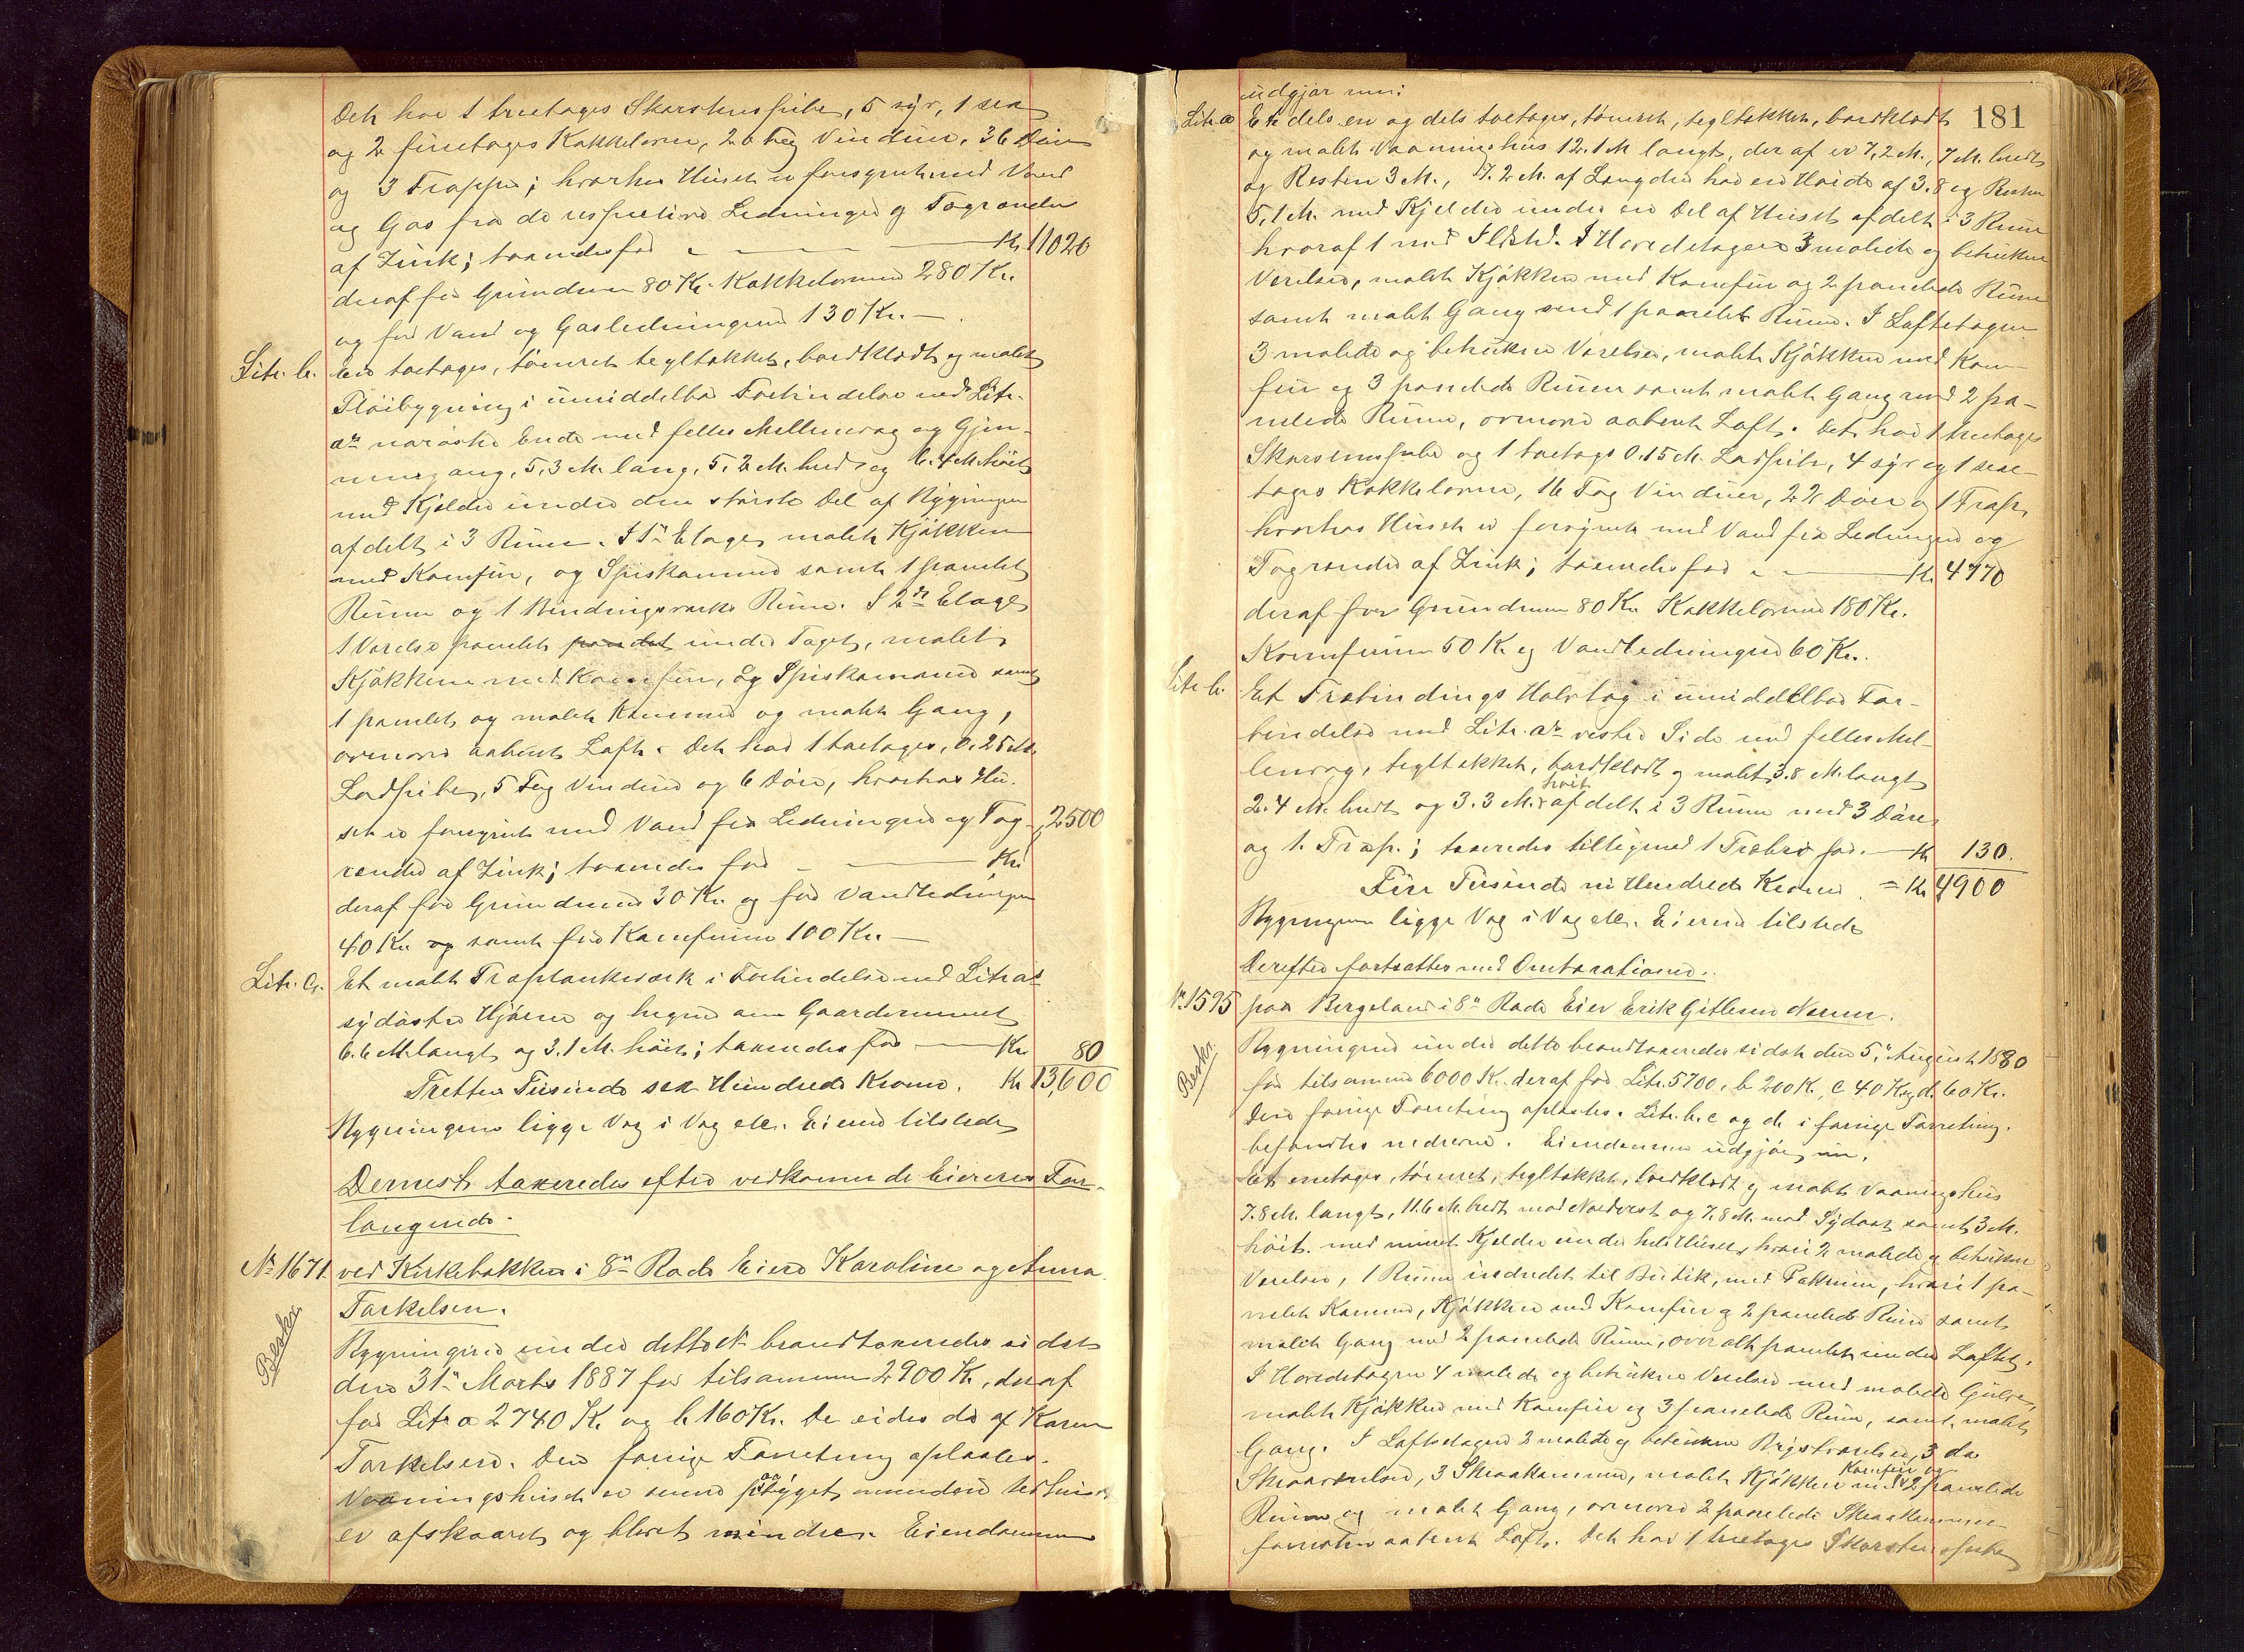 Det har 1 treetages Skorstenspibe, 5 syv, 1 sex
og 2 fireetages Kakkelovne, 26 Fag Vinduer, 36 Døre
og 3 Trapper; hvorhos Huset er forsynet med Vand
og Gas fra de respective Ledninger og Tagrender
af Zink; taxeredes for - - - Kr. 11020
deraf for Grundmur 80 Kr. Kakkelovne 280 Kr.
og for Vand og Gasledningerne 130 Kr. -
Litr. b. En toetages, tømret tegltækket, bordklædt og malet
Fløibygning i umiddelbar Forbindelse med Litr.
a's nordøstre Ende med felles Mellemvæg og Gjen-
nemgang, 5,3 M. lang, 5,2 M. bred og 6.4 M. høit
med Kjelder under den største Del af Bygningen
afdelt i 3 Rum. I 1ste Etage malet Kjøkken
med Komfur, og Spiskammer samt 1 panelet
Rum og 1 Bindingsværks Rum. I 2den Etage
1 Værelse panelet panelet under Taget, malet
Kjøkken med Komfur, og Spiskammer samt
1 panelet og malet Kammer og malet Gang,
ovenover aabent Loft. Det har 1 toetages, 0.25 M.
Lodpibe, 5 Fag Vinduer og 6 Døre, hvorhos Hu-
set er forsynet med Vand fra Ledningen og Tag- 2500
render af Zink; taxeredes for - - Kr.
deraf for Grundmur 30 Kr. og for Vandledningen
40 Kr. og samt for Komfurene 100 Kr. -
Litr. c. Et malet Træplankeværk i Forbindelse med Litr a's
sydøstre Hjørne og hegner om Gaardsrummet
6.6 M. langt og 3.1 M. høit; taxeredes for - Kr. 80
Tretten Tusinde sex Hundrede Kroner. Kr 13,600
Bygningerne ligge Væg i Væg etc. Eieren tilstede
Dernest taxeredes efter vedkommende Eieres For-
langende.
No 1671. ved Kirkebakken i 8de Rode Eiere Karoline og Anna
Torkelsen.
Beskr.
Bygningerne under dette No brandtaxeredes sidst
den 31te Marts 1887 for tilsammen 2900 Kr., deraf
for Litr a 2740 Kr og b 160 Kr. De eides da af Karen
Torkelsen. Den forrige Forretning oplæstes.
Vaaningshuset er senere paabygget, men
er afskaaret og blevet mindre. Eiendommen
181
udgjør nu:
Litr. a Et dels en og dels toetages, tømret, tegltækket, bordklædt
og malet Vaaningshus 12.1 M langt, der af er 7,2 M., 7 M. bredt
og Resten 3 M., 7.2 M. af Længden har en Høide af 3.8 og Resten
5,1 M. med Kjelder under en Del af Huset afdelt i 3 Rum
hvoraf 1 med Ildsted. I Hovedetagen 3 malede og betrukne
Værelser, malet Kjøkken med Komfur og 2 panelede Rum
samt malet Gang med 1 panelet Rum. I Loftetagen
3 malede og betrukne Værelser, malet Kjøkken med Kom-
fur og 3 panelede Rum samt malet Gang med 2 pa-
nelede Rum, ovenover aabent Loft. Det har 1 treetages
Skorstenspibe og 1 toetages 0.15 M. Lodpibe, 4 syv og 1 sex-
tages Kakkelovne, 16 Fag Vinduer, 22 Døre og 1 Trappe
hvorhos Huset er forsynet med Vand fra Ledningen og
Tagrender af Zink; taxeredes for - - Kr. 4770
deraf for Grundmur 80 Kr. Kakkelovne 180 Kr.
Komfurene 50 Kr. og Vandledningen 60 Kr.
Litr b. Et Træbindings Halvtag i umiddelbar For-
bindelse med Litr. a's vestre Side med felles Mel-
lemvæg, tegltækket, bordklædt og malet 3.8 M. langt
2.4 M. bredt og 3.3 M. høit afdelt i 3 Rum med 3 Døre
og 1 Trap.; taxeredes tilligemed 1 Træbro for. - Kr 130.
Fire Tusinde ni Hundrede Kroner = Kr 4900
Bygningerne ligge Væg i Væg etc. Eieren tilstede
Derefter fortsættes med Omtaxationen.
No 1595 paa Bergeland i 8de Rode Eier Erik Gitlesen Næsse.
Beskr.
Bygningerne under dette brandtaxeredes sidst den 5te August 1880
for tilsammen 6000 Kr. deraf for Litr. 5700, b 200 K., c 40 K og d. 60 Kr.
Den forrige Forretning oplæstes. Litr. b. c og d. i forrige Forretning.
befandtes nedrevne. Eiendommen udgjør nu,
Et enetages, tømret, tegltækket, bordklædt og malet Vaaningshus
7.8 M. langt, 11.6 M. bredt mod Nordvest og 7,8 M. mod Sydost samt 3 M.
høit. med muret Kjelder under hele Huset, hvori 2 malede og betrukne
Værelser, 1 Rum indredet til Butik, med Pakrum, hvori 1 pa-
nelet Kammer, Kjøkken med Komfur og 2 panelede Rum samt
malet Gang med 2 panelede Rum, overalt panelet under Loftet.
I Hovedetagen 4 malede og betrukne Værelser med malede Gulve,
malet Kjøkken med Komfur og 3 panelede Rum, samt malet
Gang. I Loftsetagen 2 malede og betrukne Kvistværelser, 3 do
Skraaværelser, 3 Skraakammere, malet Kjøkken med Komfur og 2 panelede
Rum og malet Gang, ovenover 2 panelede Skraakammere
forøvrigt aabent Loft. Det har 1 treetages Skorstenspibe